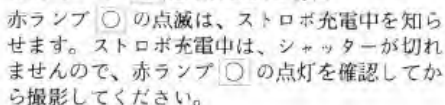 赤ランプ ○ の点滅は、ストロボ充電中を知ら
せます。ストロボ充電中は、シャッターが切れ
ませんので、赤ランプ ○ の点灯を確認してか
ら撮影してください。